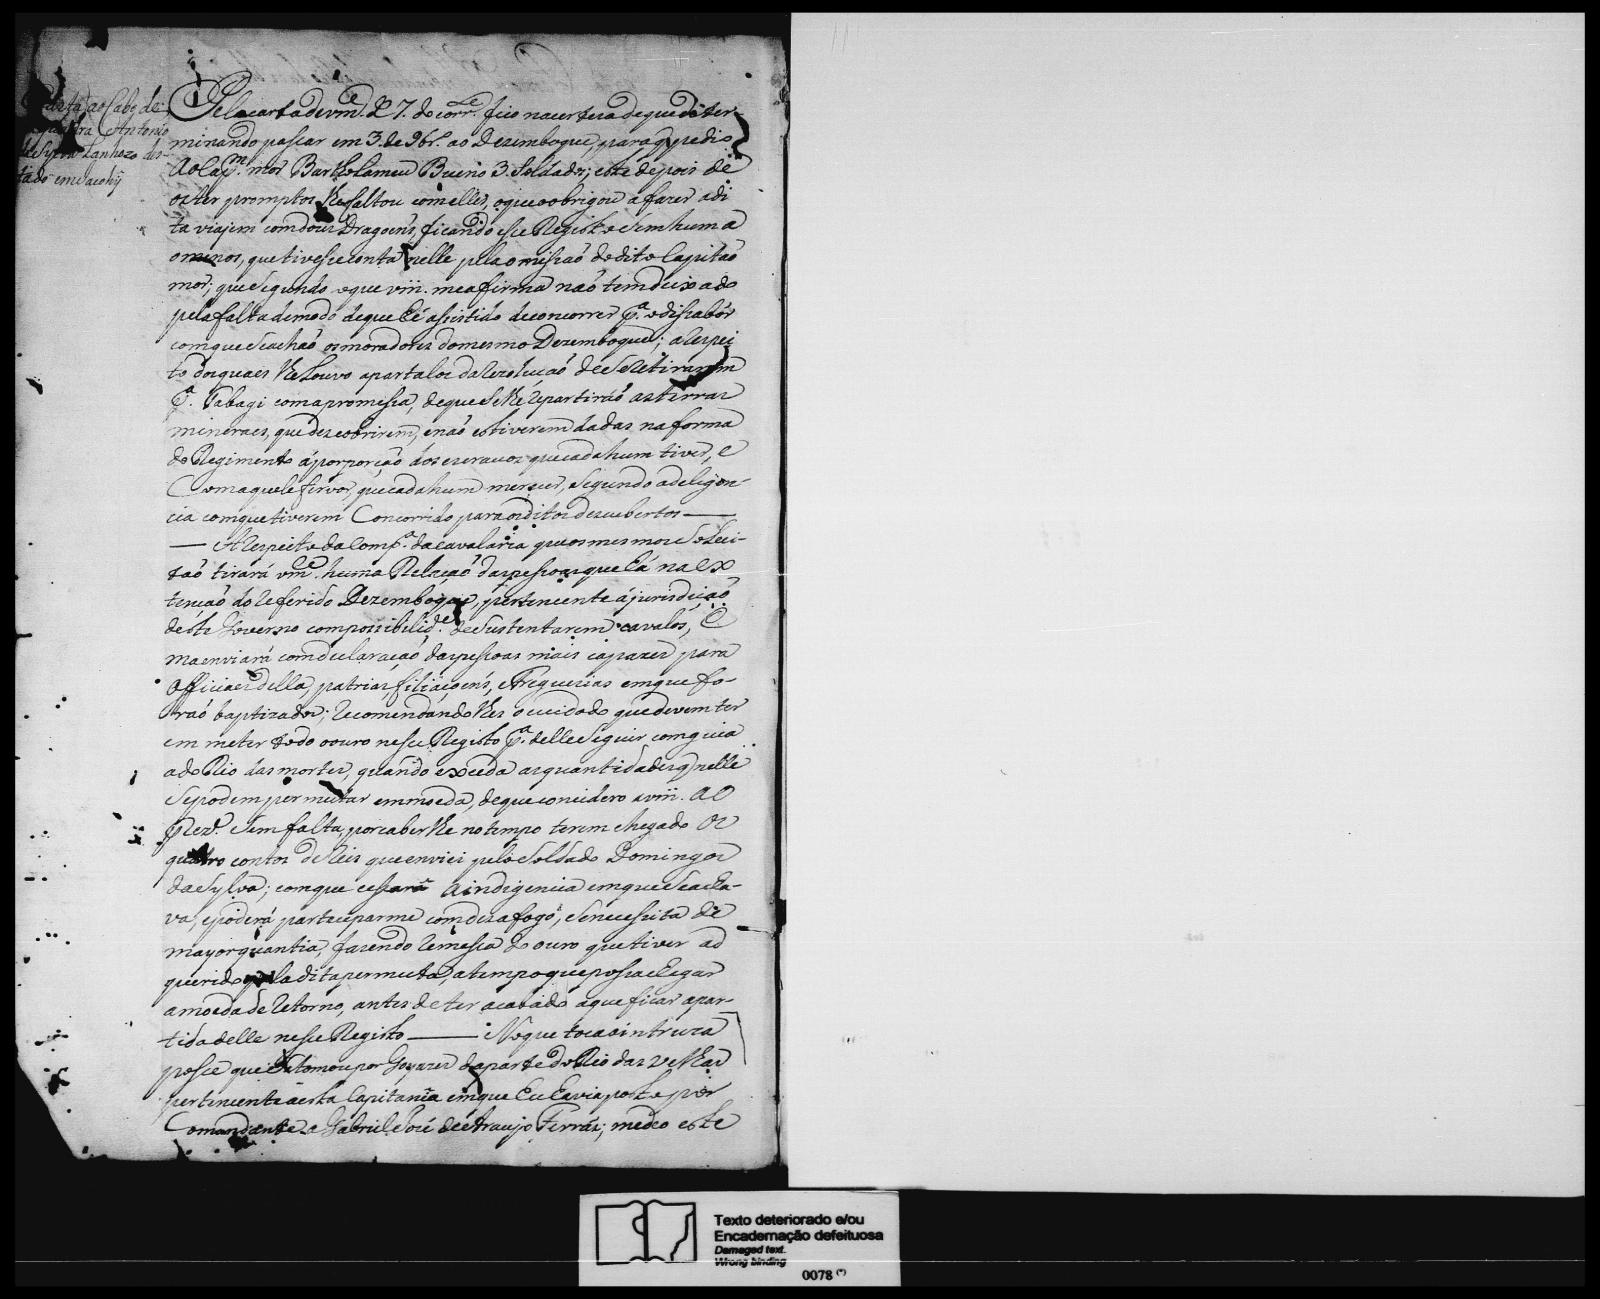 Carta ao Cabo de
Esquadra Antonio
da Sylva Lanhozo des-
tado em Jacohy
Pela carta de vm.ce de 7. do corr.e fico na certeza de que deter-
minando passar em 3. de 9br.o ao Dezemboque, para q pedio
Ao Cap.m mor Bartholameu Bueno 3. Soldados; este depois de
os ter promptos lhe faltou com elles, o que o obrigou a fazer a di
ta viajem com dous Dragoens, ficando esse Registo sem hum a
o menos, que tivesse conta nelle pela omissaõ do dito Capitaõ
mor; que segundo o que vm. me afirma naõ tem deixado
pela falta do modo de que hé assistido de concorrer p.a o dissabor
com que se achaõ os moradores do mesmo Dezemboque; a respei
to dos quaes lhe Louvo apartalos da rezoluçaõ de se retirarem
p.a Tabagi com a promessa, de que se lhe repartiráõ as terras
mineraes, que descobrirem, e naõ estiverem dadas na forma
do Regimento á porporçaõ dos escravos que cada hum tiver, e
Com aquele fervor, que cada hum merecer, segundo a deligen-
cia com que tiverem Concorrido para os ditos descubertos ——
—— A respeito da Comp.a da cavalaria que os mesmos Solici-
taõ tirará vm.ce huma Relaçaõ das pessoas que há na ex
tençaõ do referido Dezemboque, pertencente á jurisdiçaõ
deste Governo com possibilid.e de sustentarem cavalos, e
ma enviará com declaraçaõ das pessoas mais capazes para
Officiaes della, patrias, filiaçoens, e Freguezias em que fo-
raõ baptizados; recomendando lhes o cuidado que devem ter
em meter todo o ouro nesse Registo p.a delle seguir com guia
a do Rio das mortes, quando exceda as quantidades q nelle
se podem permutar em moeda, de que concidero a vm. ao
prez.e sem falta, por caber lhe no tempo terem chegado os
quatro contos de Reis que enviei pelo Soldado Domingos
da Sylva; com que cessará a indigencia em que se acha-
va, e poderá participarme com desafogo, se necessita de
mayor quantia, fazendo remessa do ouro que tiver ad
querido pela dita permuta, a tempo que possa chegar
a moeda de retorno, antes de ter acabado a que ficar apar-
tida delle nesse Registo —— No que toca a intruza
posse que se tomou por Goyazes da parte do Rio das Velhas
pertencente a esta Capitania em que Eu havia posto por
Comandante a Gabriel José de Araujo Ferráz; me deo este
Texto deteriorado e/ou
Encadernação defeituosa
Damaged text.
Wrong binding
0078 (*)